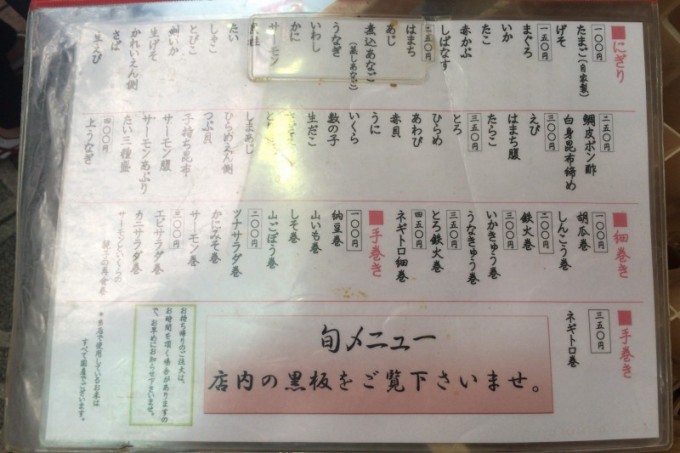 ■にぎり
一〇〇円
たまご(自家製)
げそ
一五〇円
まぐろ
いか
たこ
赤かぶ
しばなす
二五〇円
はまち
あじ
煮込あなご
(蒸しあなご)
うなぎ
いわし
かに
サーモン
たい
しゃこ
とびこ
剣いか
生げそ
かれいえん側
さば
生えび
二五〇円
鯛皮ポン酢
白身昆布締め
三〇〇円
えび
はまち腹
たらこ
三五〇円
とろ
ひらめ
あわび
赤貝
うに
いくら
数の子
生だこ
しまあじ
ひらめえん側
つぶ貝
子持ち昆布
サーモン腹
サーモンあぶり
たい三種盛
四〇〇円
上うなぎ
■細巻き
一〇〇円
胡瓜巻
しんこう巻
二〇〇円
鉄火巻
三〇〇円
いかきゅう巻
うなきゅう巻
三五〇円
とろ鉄火巻
四五〇円
ネギトロ細巻
■手巻き
一〇〇円
納豆巻
山いも巻
しそ巻
山ごぼう巻
二〇〇円
ツナサラダ巻
かにみそ巻
サーモン巻
三〇〇円
エビサラダ巻
カニサラダ巻
サーモンといくらの
■手巻き
三五〇円
ネギトロ巻
旬メニュー
店内の黒板をご覧下さいませ。
お持ち帰りのご注文は、
お時間を頂く場合がありますの
で、お早めにお知らせ下さいませ。
*当店で使用しているお米は
すべて国産でございます。